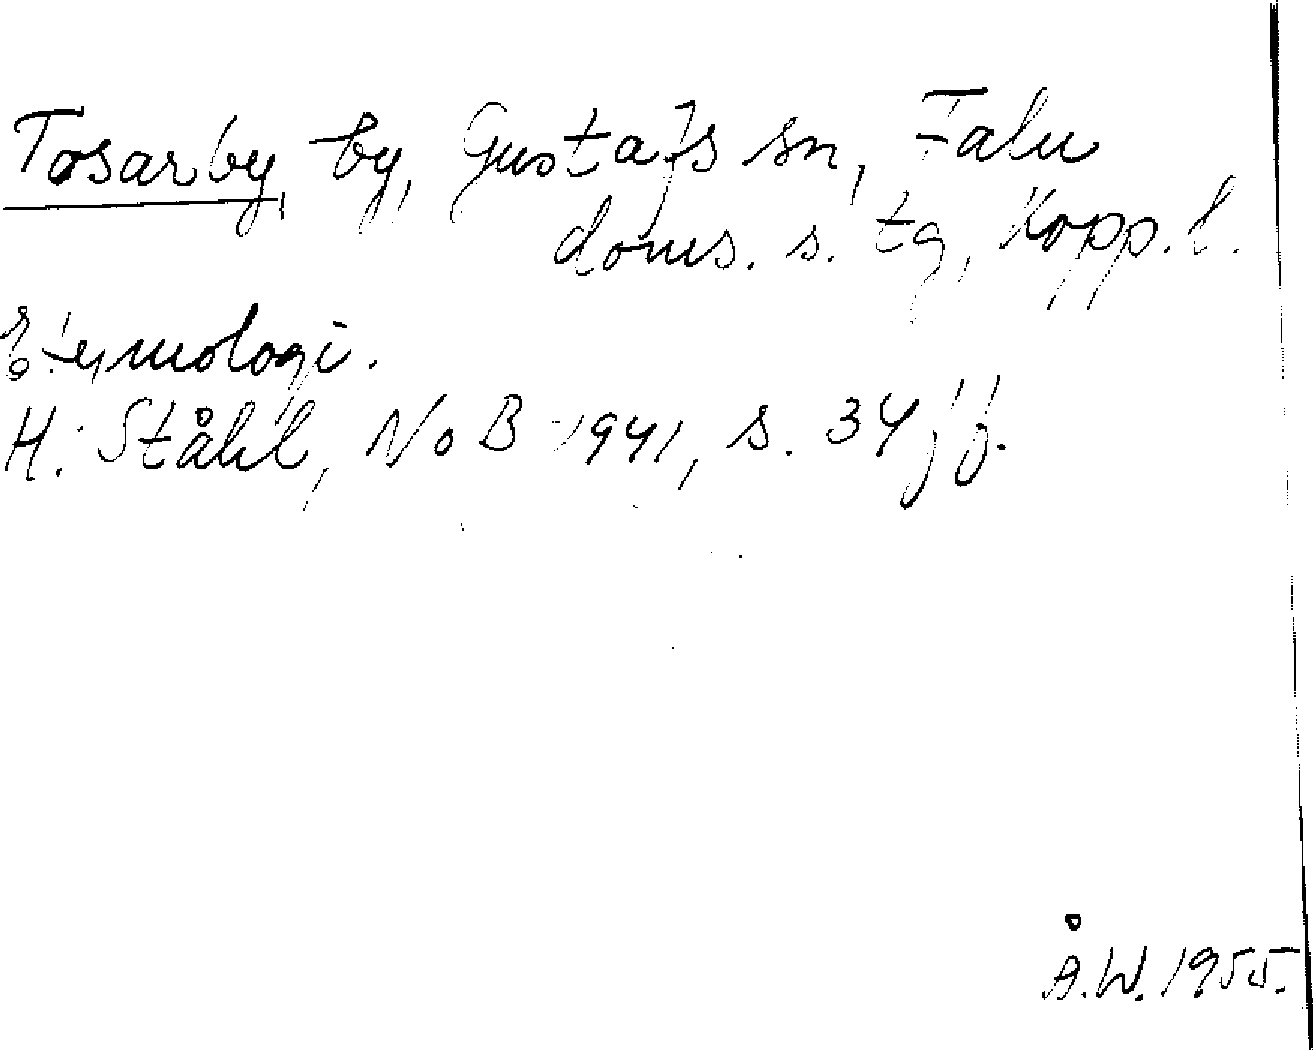 Tosarby, by, Gustafs sn, Falu
doms. s. tg, Kopp. l.
Etymologi.
H. Ståhl, NoB 1941, s. 34 ff.
Å.W. 1955.